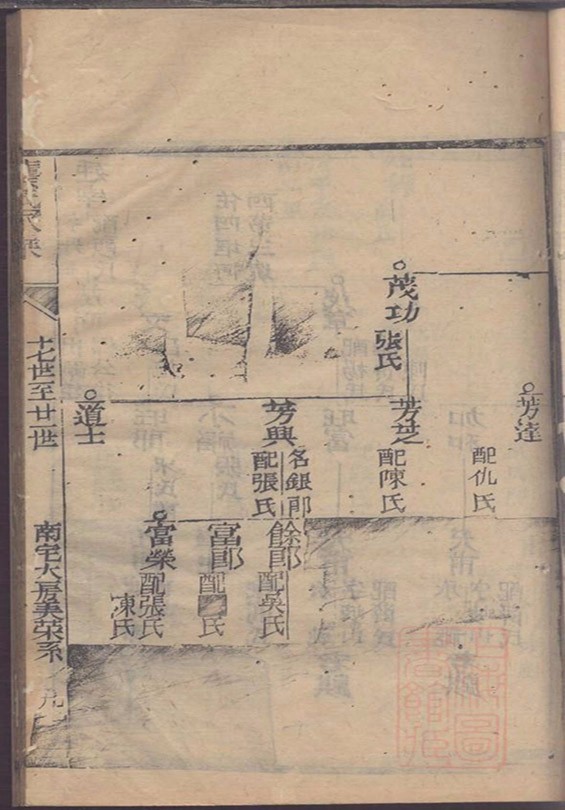 茂功
張氏
芳達
配仇氏
芳芝
配陳氏
芳興
名銀郎
配張氏
道士
餘郎
配吳氏
富郎
配
氏
富榮
配張氏
凍氏
十七世至廿一世
南宅大房美榮系
九